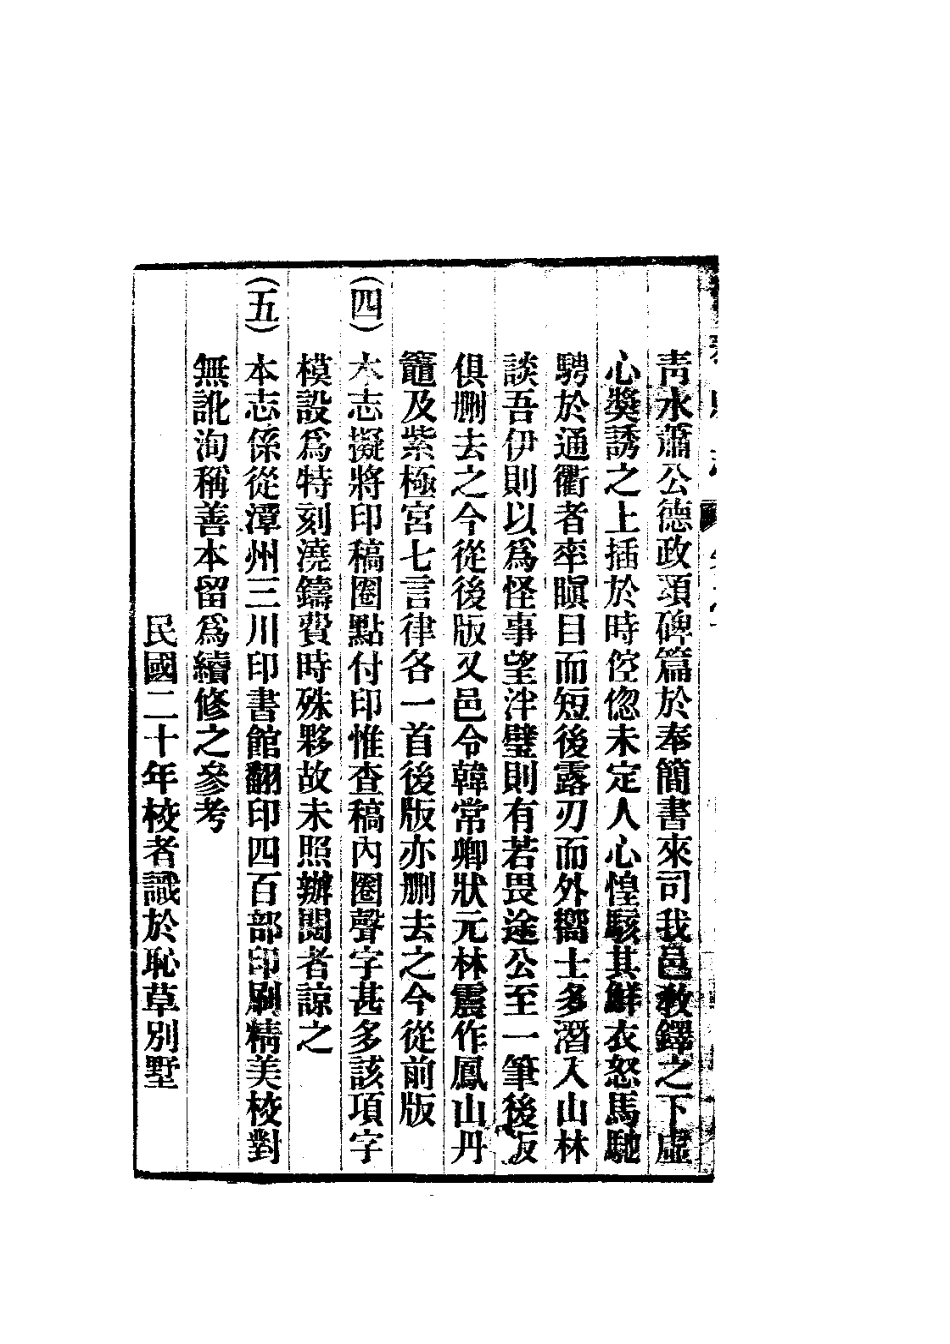 青永蕭公德政頌碑篇於奉簡書來司我邑敎鐸之下虛
心獎誘之上插於時倥傯未定人心惶駭其鮮衣怒馬馳
騁於通衢者率瞋目而短後露刃而外嚮士多潛入山林
談吾伊則以爲怪事望泮璧則有若畏途公至一筆後版
俱刪去之今從後版又邑令韓常卿狀元林震作鳳山丹
竈及紫極宮七言律各一首後版亦刪去之今從前版
(四)本志擬將印稿圈點付印惟查稿內圈聲字甚多該項字
模設爲特刻澆鑄費時殊夥故未照辦閱者諒之
(五)本志係從潭州三川印書館翻印四百部印刷精美校對
無訛洵稱善本留爲續修之參考
民國二十年校者識於恥草別墅